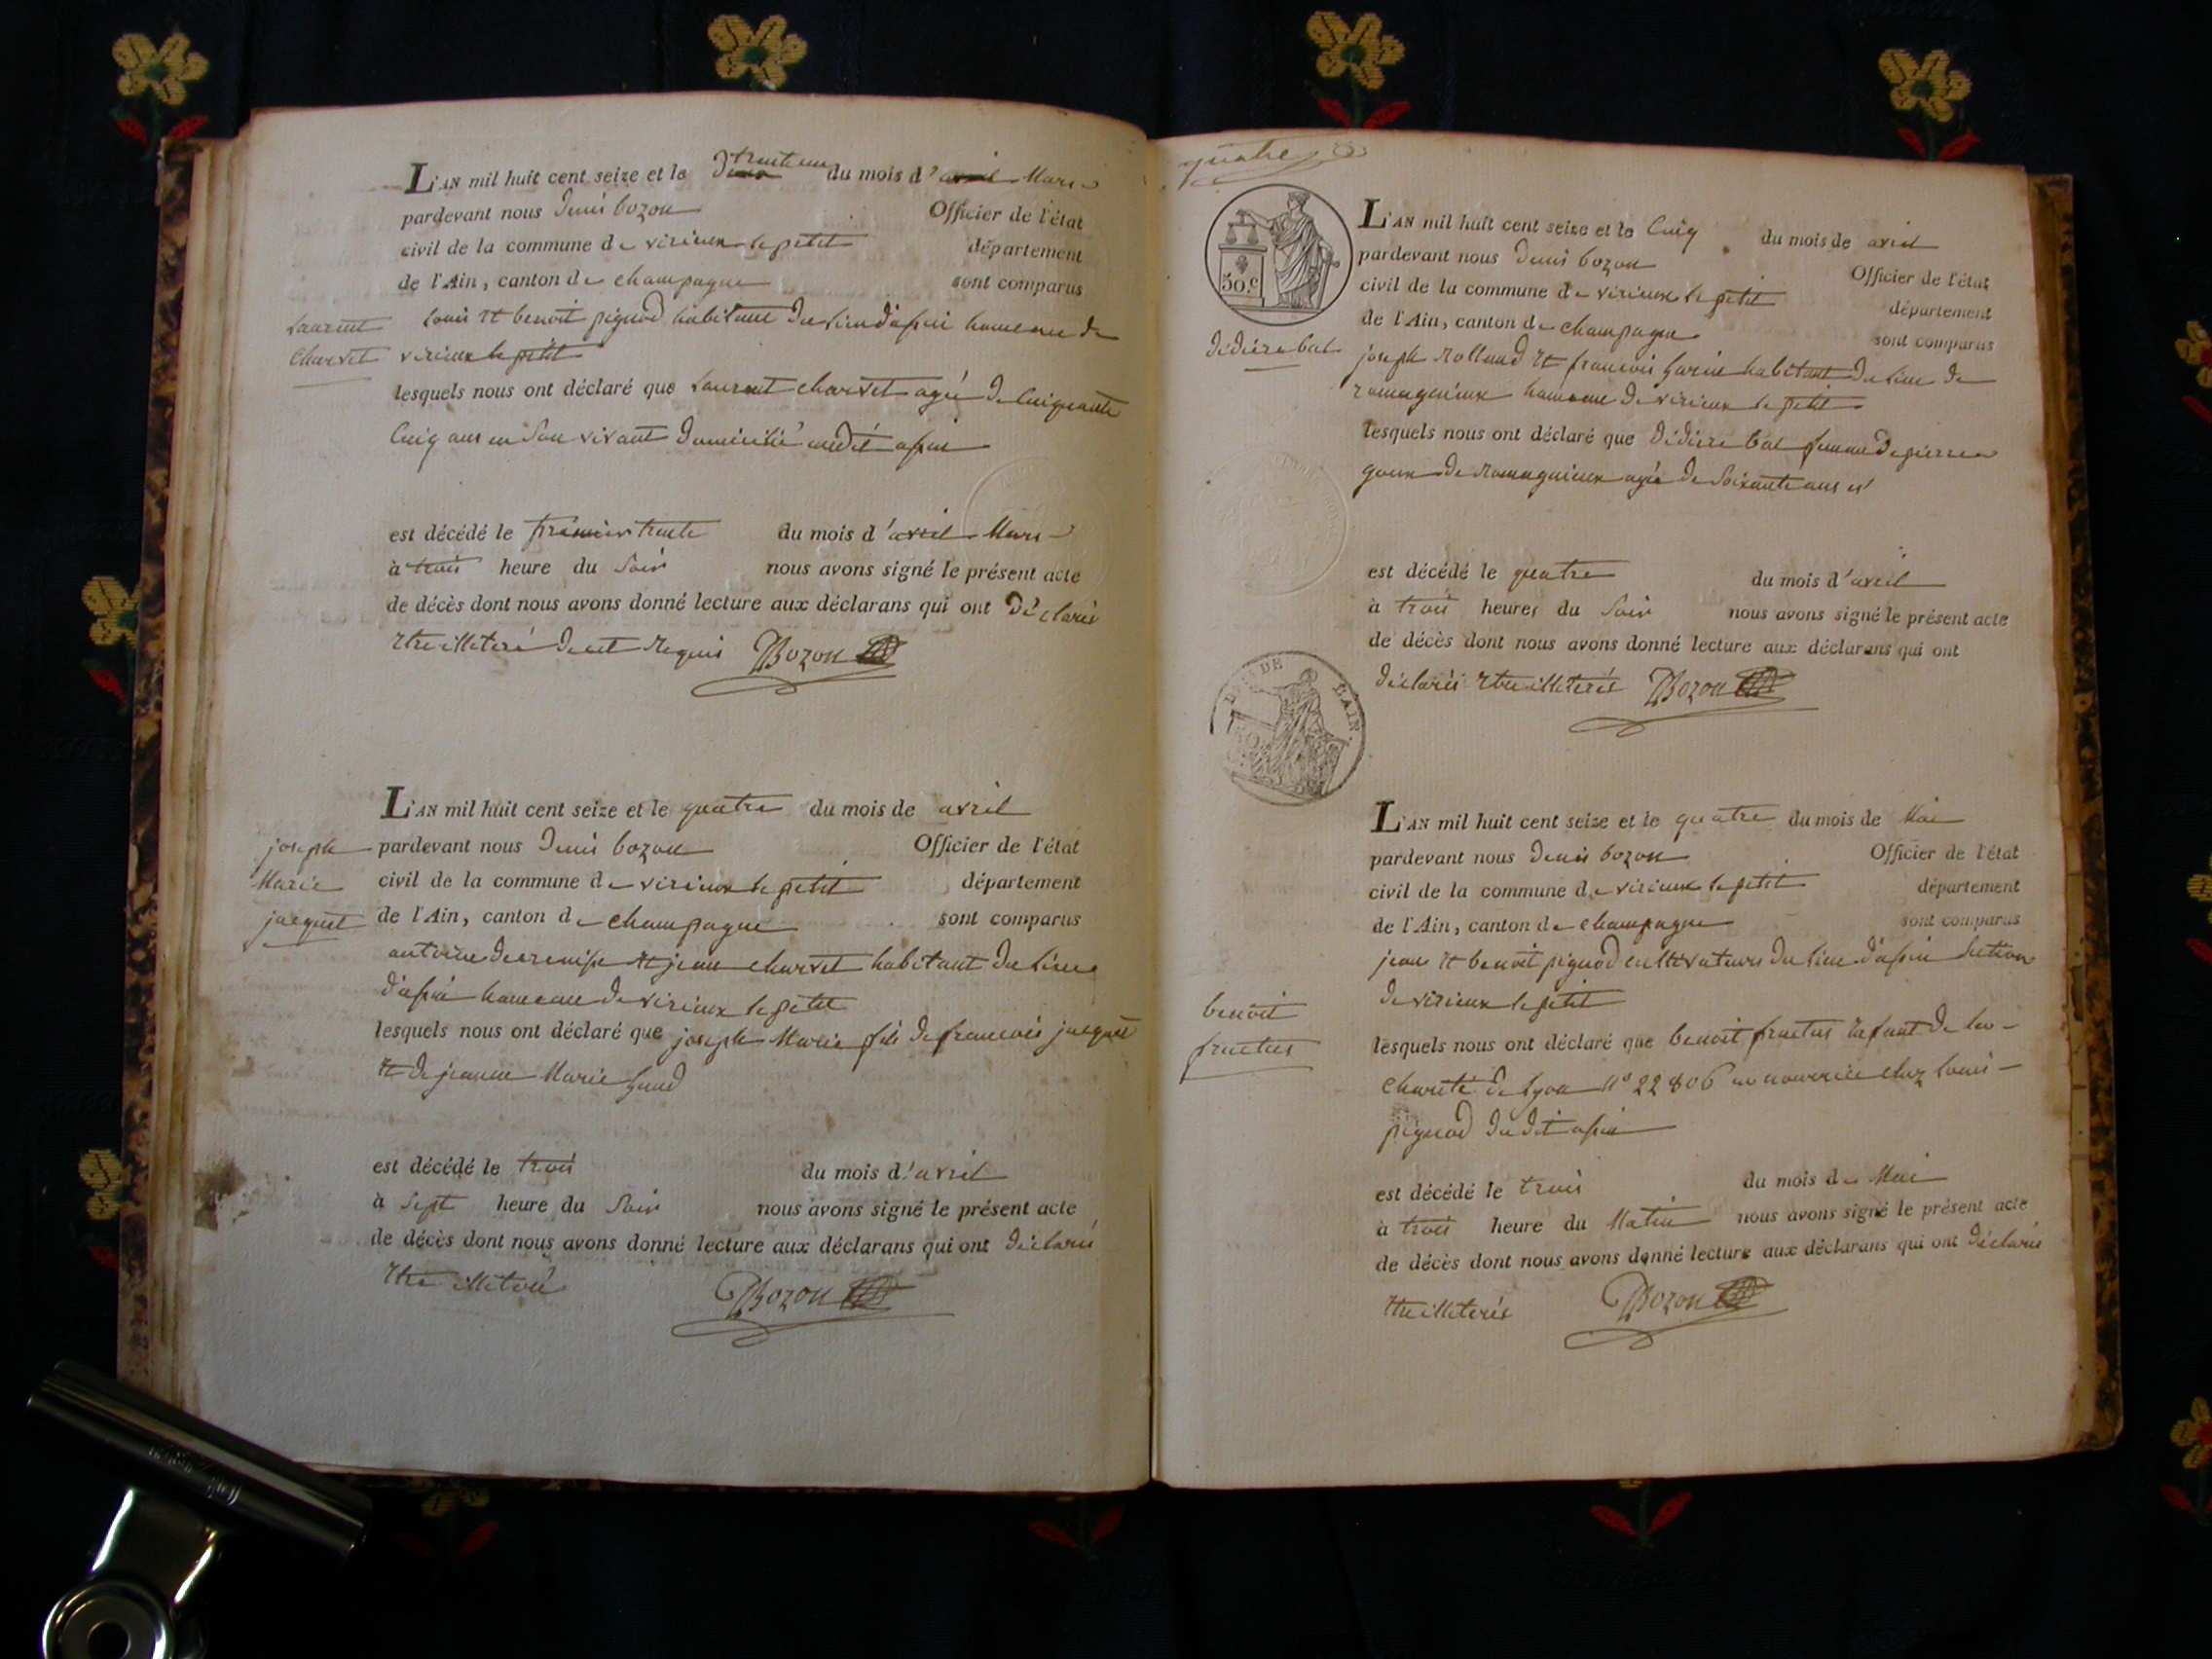 L'AN mil huit cent seize et le trente un du mois d'avril Mars
pardevant nous Denis bozon Officier de l'état
civil de la commune de virieux le petit département
de l'Ain, canton de champagne sont comparus
Laurent
Charvet
Louis et benoit pignod habitant du lieu d'assin hameau de
virieux le petit
lesquels nous ont déclaré que Laurent charvet agé de Cinquante
Cinq ans en son vivant domicilié audit assin
est décédé le premier trente du mois d'avril Mars
à trois heure du Soir nous avons signé le présent acte
de décès dont nous avons donné lecture aux déclarans qui ont déclarés
etre illeteré de cet requis Bozon
L'AN mil huit cent seize et le quatre du mois de avril
joseph
Marie
jacquet
pardevant nous Denis bozon Officier de l'état
civil de la commune de virieux le petit département
de l'Ain, canton de champagne sont comparus
antoine et jean charvet habitant du lieu
d'assin hameau de virieux le petit
lesquels nous ont déclaré que joseph Marie fils de francois jacquet
et de jeanne Marie
est décédé le trois du mois d'avril
à Sept heure du Soir nous avons signé le présent acte
de décès dont nous avons donné lecture aux déclarans qui ont déclaré
etre illiteré Bozon
quatre
50.c
L'AN mil huit cent seize et le Cinq du mois de avril
pardevant nous Denis bozon Officier de l'état
civil de la commune de virieux le petit département
de l'Ain, canton de champagne sont comparus
didiere bal
joseph Rolland et francois garin habitant du lieu de
romagnieux hameau de virieux le petit
lesquels nous ont déclaré que didiere bal femme de pierre
goux de Romagnieux agée de Soixante ans
est décédé le quatre du mois d'avril
à trois heures du Soir nous avons signé le présent acte
de décès dont nous avons donné lecture aux déclarans qui ont
déclarés etre illeterés Bozon
DE L'AIN.
L'AN mil huit cent seize et le quatre du mois de Mai
pardevant nous Denis bozon Officier de l'état
civil de la commune de virieux le petit département
de l'Ain, canton de champagne sont comparus
jean et benoit pignod cultivateurs du lieu d'assin section
de virieux le petit
benoit
fructus
lesquels nous ont déclaré que benoit fructus enfant de la
charité de Lyon n° 22806 en nourrice chez Louis
pignod du dit assin
est décédé le trois du mois de Mai
à trois heure du Matin nous avons signé le présent acte
de décès dont nous avons donné lecture aux déclarans qui ont déclarés
etre illeterés Bozon